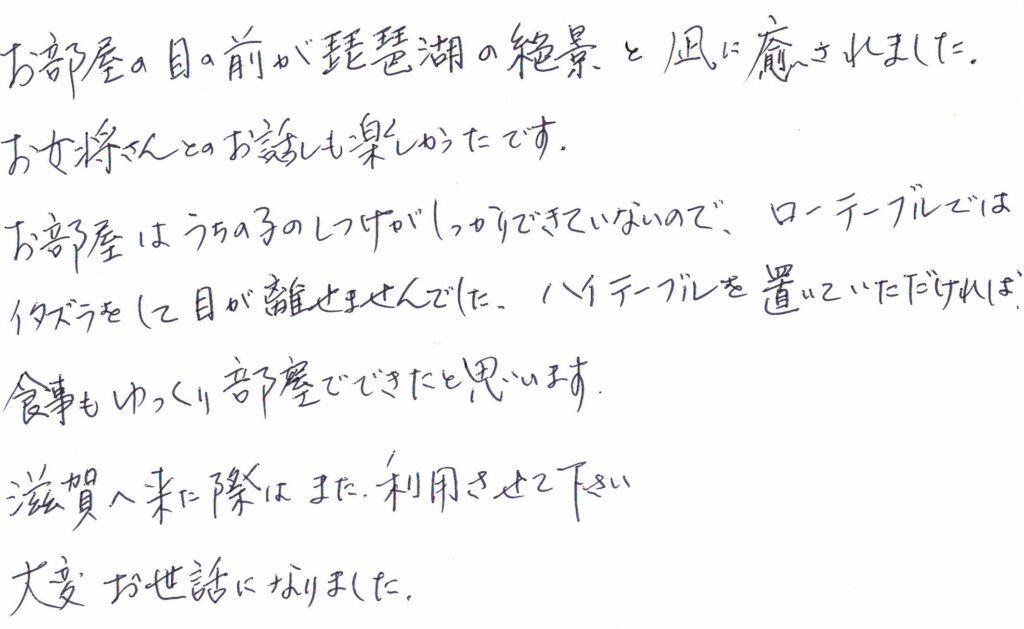 お部屋の目の前が琵琶湖の絶景と凪に癒されました.
お女将さんとのお話しも楽しかったです.
お部屋はうちの子のしつけがしっかりできていないので、ローテーブルでは
イタズラをして目が離せませんでした、ハイテーブルを置いていただければ、
食事もゆっくり部屋でできたと思います.
滋賀へ来た際はまた利用させて下さい
大変お世話になりました.